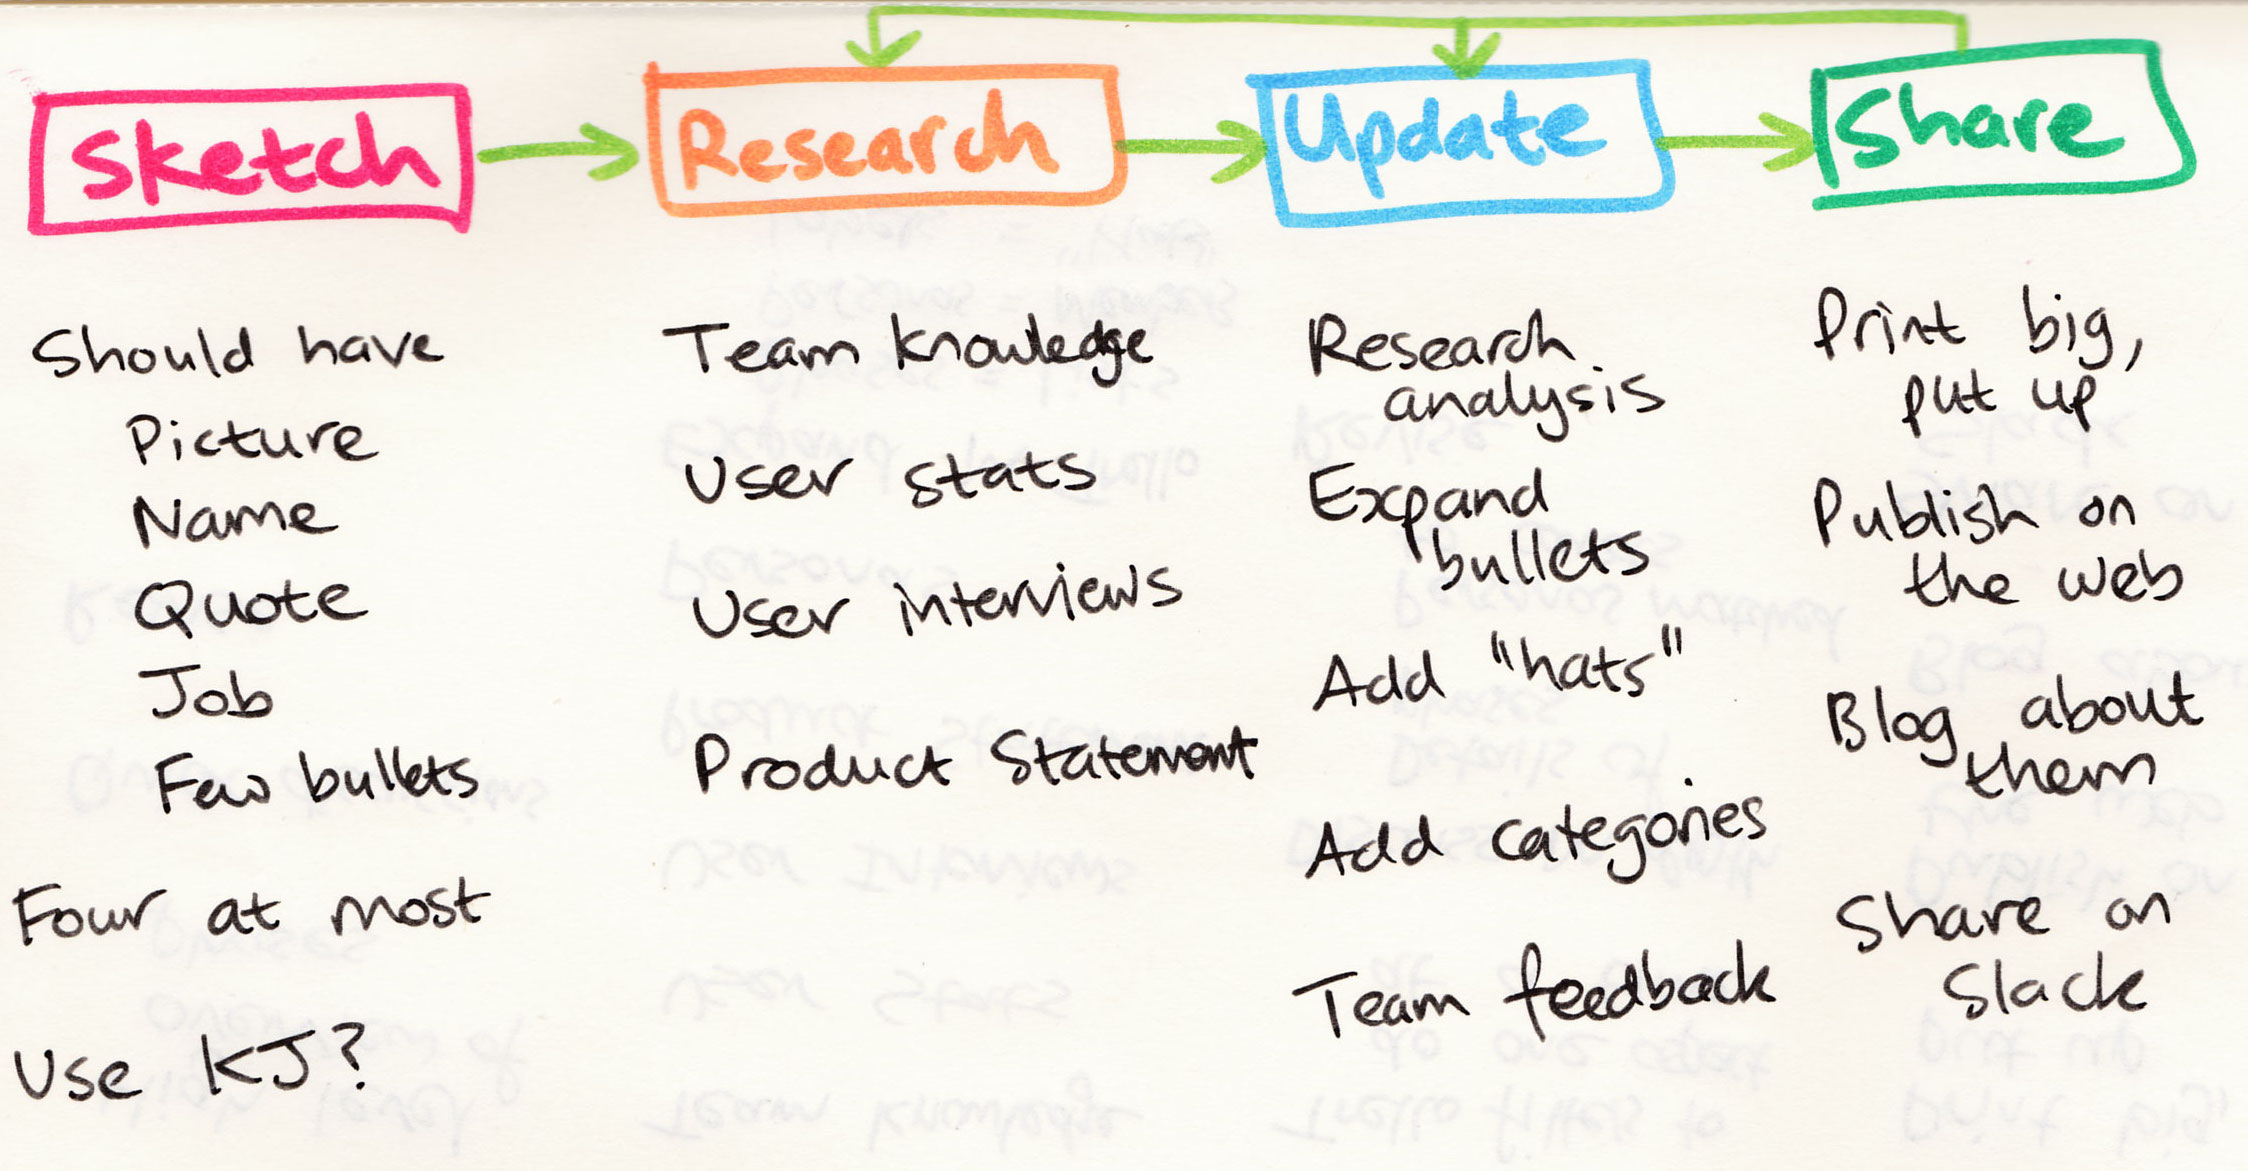 Sketch
Research
Update
Share
Should have
Picture
Name
Quote
Job
Few bullets
Four at most
Use KJ?
Team knowledge
User stats
User interviews
Product Statement
Research
analysis
Expand
bullets
Add "hats"
Add categories
Team feedback
Print big,
put up
Publish on
the web
Blog about
them
Share on
Slack